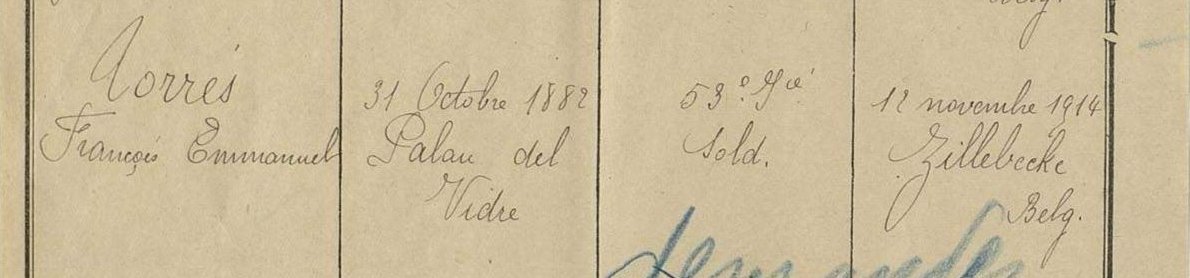 Torrés
François Emmanuel
31 Octobre 1882
Palau del
Vidre
53e
Sold.
12 novembre 1914
Zillebecke
Belg.